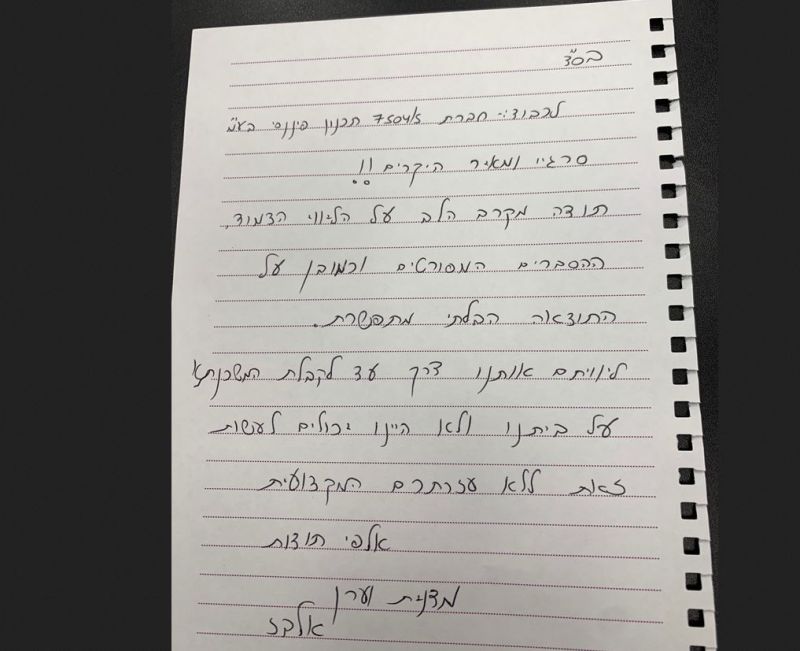 בס"ד
לכבוד:- חברת פיננסי בע"מ תכנון
סרגיי ומאיר היקרים!!
תודה מקרב הלב על הליווי הצמוד,
ההסברים המפורטים וכמובן על
התוצאה הבלתי מתפשרת.
ליוויתם אותנו דרך עד לקבלת המשכנתא
על ביתנו ולא היינו יכולים לעשות
זאת ללא עזרתכם המקצועית
אלפי תודות
וערן
אלבז